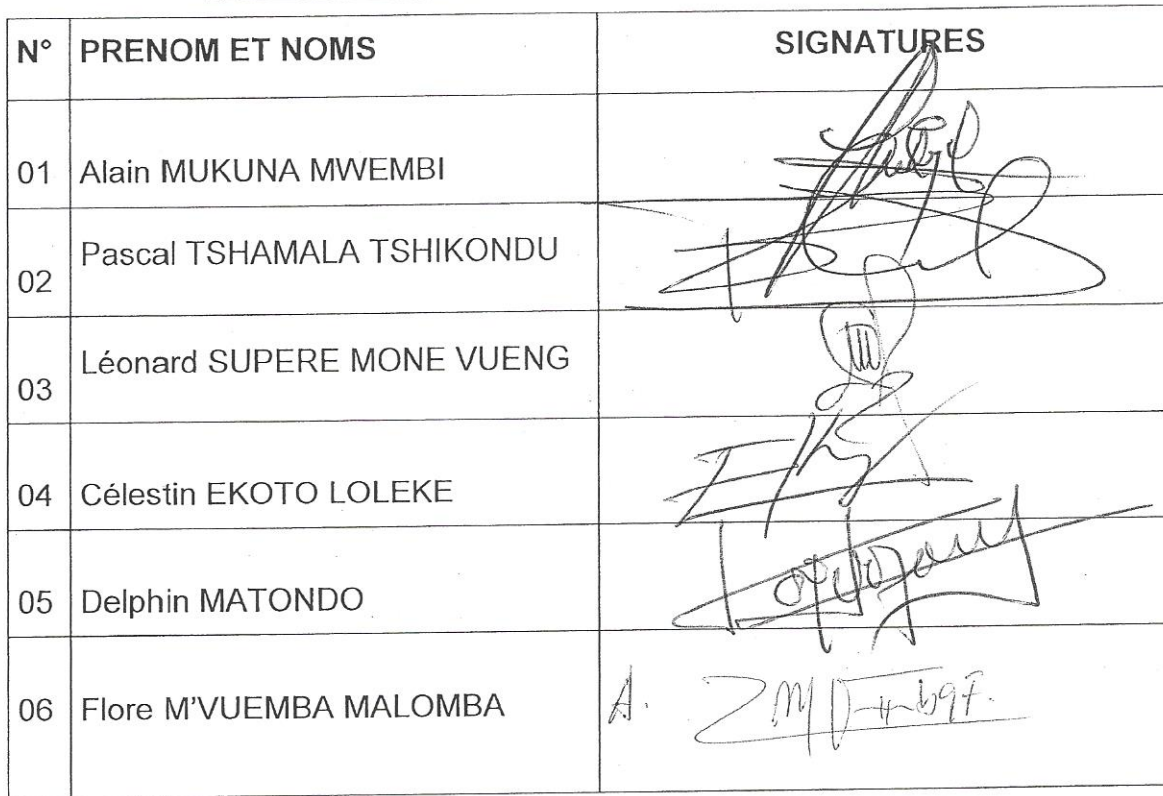 N° PRENOM ET NOMS SIGNATURES
01 Alain MUKUNA MWEMBI
02 Pascal TSHAMALA TSHIKONDU
03 Léonard SUPERE MONE VUENG
04 Célestin EKOTO LOLEKE
05 Delphin MATONDO
06 Flore M'VUEMBA MALOMBA A.